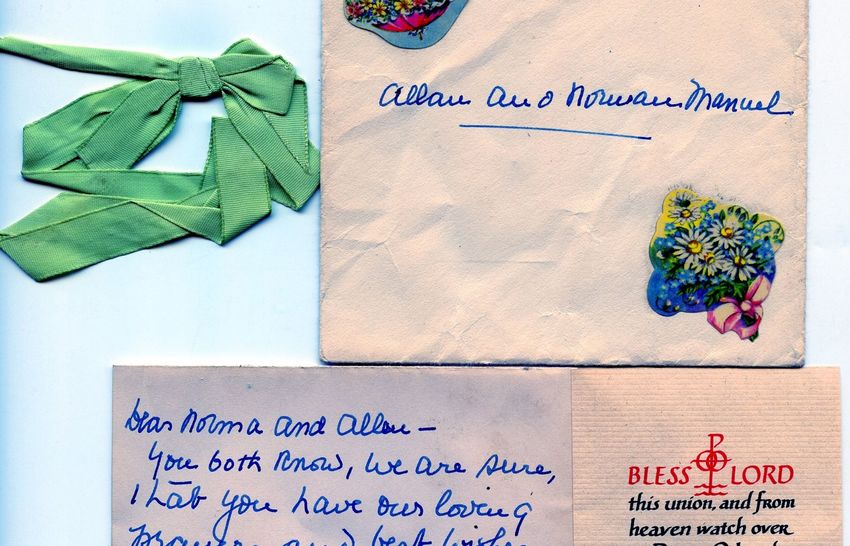 Allan and Norman Manuel
Dear Norma and Allan —
You both know, we are sure,
that you have our loving
prayers and best wishes
BLESS LORD
this union, and from
heaven watch over